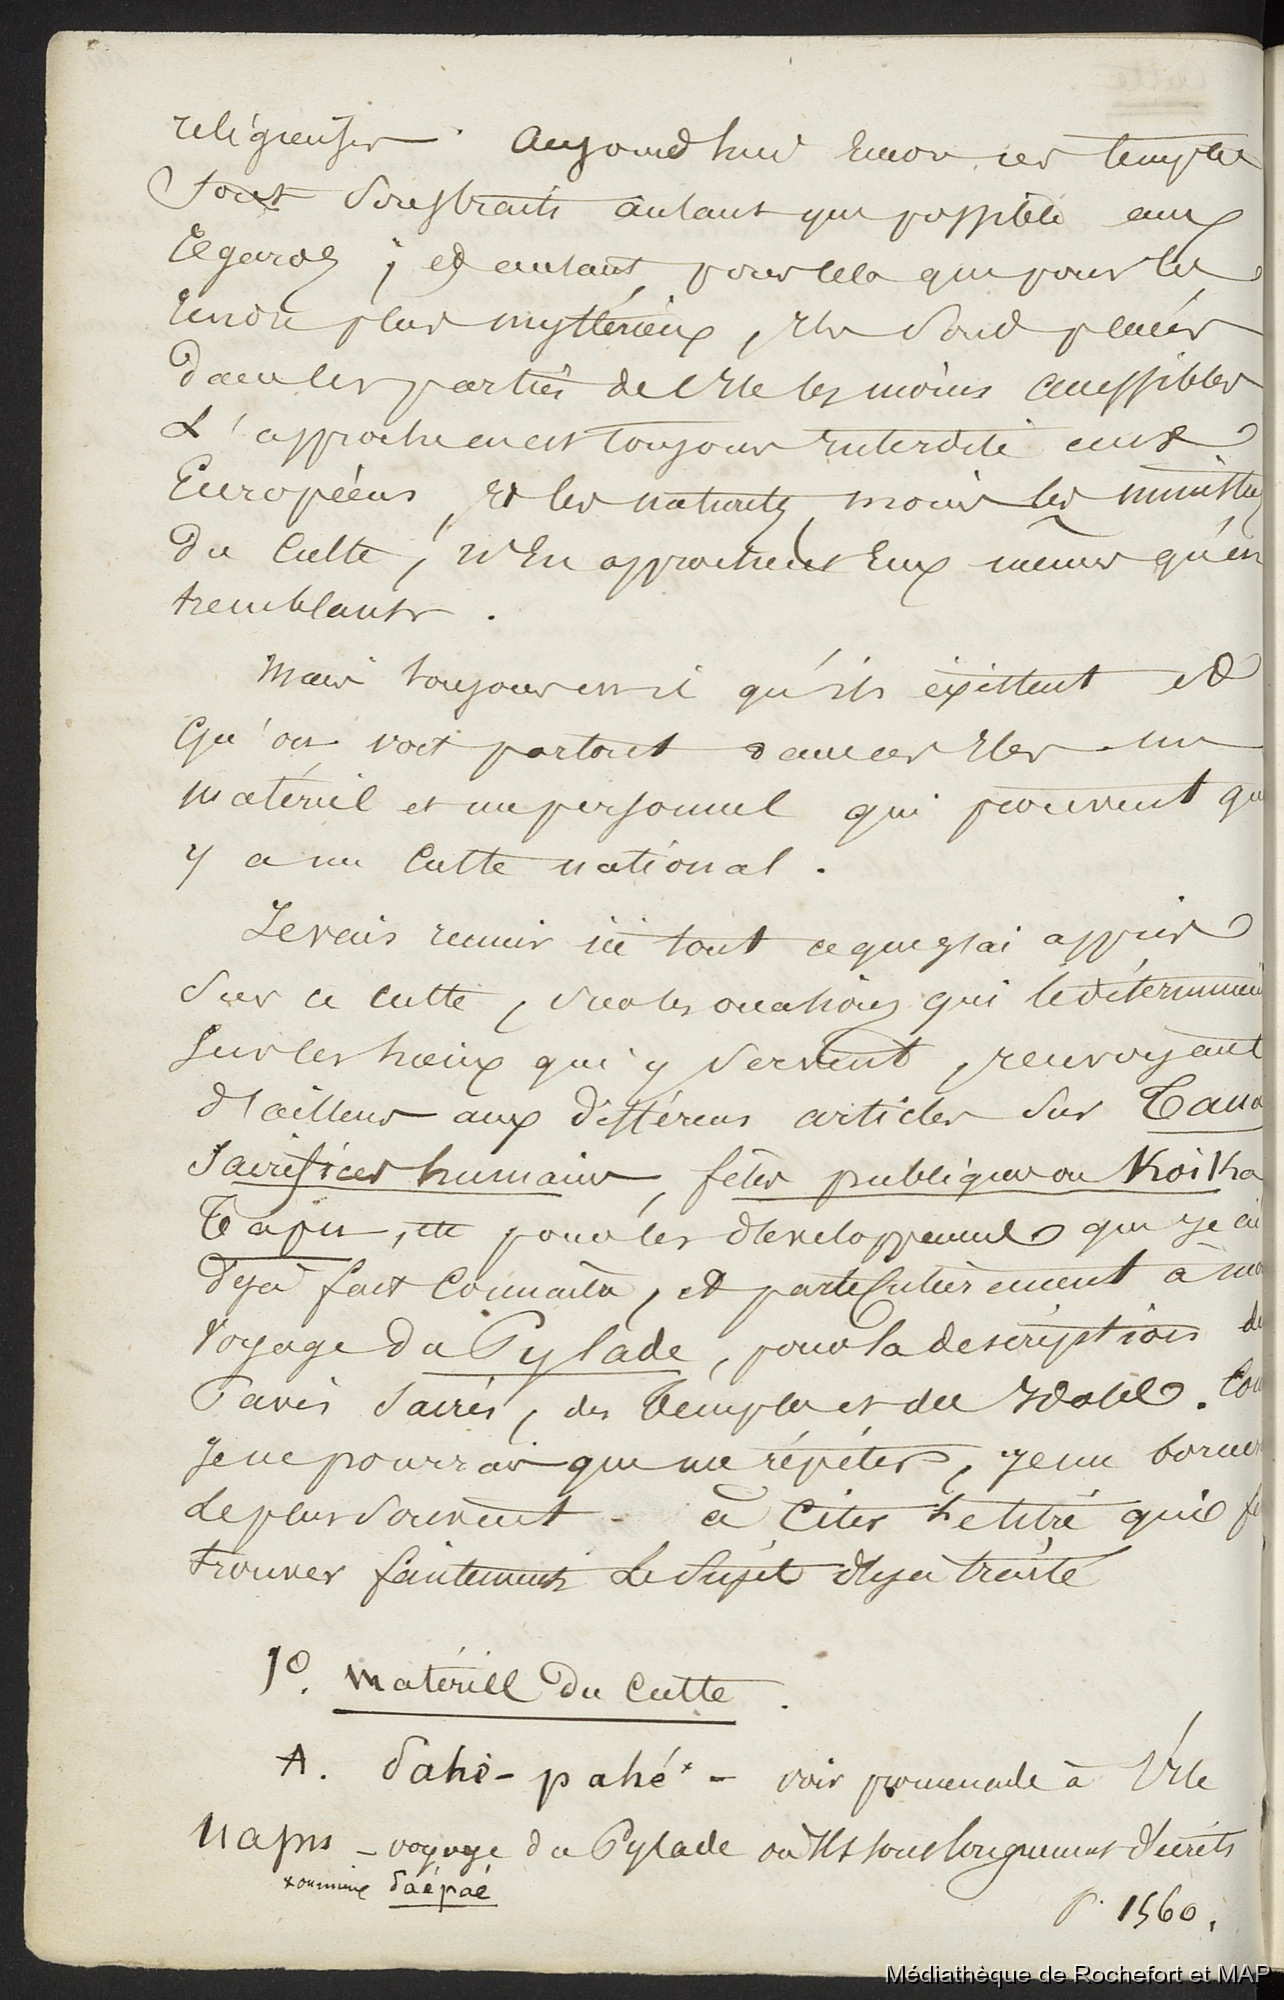 religieuses. Aujourd'hui encore ces temples
sont soustraits autant que possible aux
regards ; et autant pour cela que pour les
rendre plus mystérieux, ils sont placés
dans les parties de l'île les moins accessibles
L'approche en est toujours interdite aux
Européens, et les naturels, moins les ministres
du Culte, n'en approchent eux mêmes qu'en
tremblants.
Mais toujours est il qu'ils existent et
qu'on voit partout dans ces îles un
matériel et un personnel qui prouvent qu
y a un Culte national.
Je vais réunir ici tout ce que j'ai appris
sur ce culte, sur les occasions qui le déterminent
sur les lieux qui y servent, renvoyant
d'ailleurs aux différens articles sur Taua
Sacrifices humains, fêtes publiques ou Koika
Tapu, etc pour les développements que j'ai
déjà fait connaître, et particulièrement à mon
voyage du Pylade, pour la description de
Pavés sacrés, des temples et des idoles. Com
je ne pourrais que me répéter, je me borner
le plus souvent à citer le titre qui fe
trouver facilement le sujet déjà traité
1º. Matériel du Culte.
A. Pahé-pahé* - voir promenade à l'île
Napu - voyage du Pylade où ils sont longuement décrits
x ou mieux Paépaé
P. 1560.
Médiathèque de Rochefort et MAP